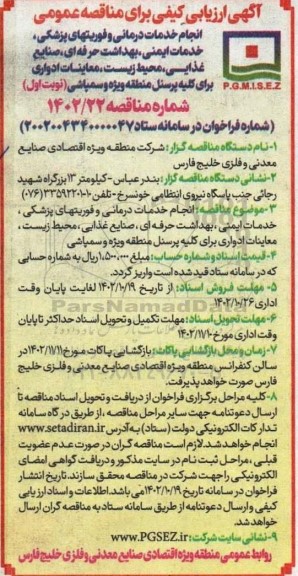 آگهی ارزیابی کیفی برای مناقصه عمومی
انجام خدمات درمانی و فوریتهای پزشکی،
خدمات ایمنی، بهداشت حرفه ای، صنایع
غذایی، محیط زیست، معاینات ادواری
برای کلیه پرسنل منطقه ویژه و سمپاشی (نوبت اول)
P.G.M.I.S.E.Z
شماره مناقصه ۱۴۰۲/۲۲
(شماره فراخوان در سامانه ستاد ۲۰۰۲۰۰۴۳۴۰۰۰۰۰۴۷)
۱-نام دستگاه مناقصه گزار: شرکت منطقه ویژه اقتصادی صنایع
معدنی و فلزی خلیج فارس
۲-نشانی دستگاه مناقصه گزار: بندرعباس-کیلومتر ۱۳ بزرگراه شهید
رجائی جنب پاسگاه نیروی انتظامی خونسرخ-تلفن ۱۰-۳۳۵۹۲۲۰۱ (۰۷۶)
۳-موضوع مناقصه: انجام خدمات درمانی و فوریتهای پزشکی،
خدمات ایمنی، بهداشت حرفه ای، صنایع غذایی، محیط زیست،
معاینات ادواری برای کلیه پرسنل منطقه ویژه و سمپاشی
۴-قیمت اسناد و شماره حساب: مبلغ ۱.۵۰۰.۰۰۰ ریال به شماره حسابی
که در سامانه ستاد قید شده است واریز گردد.
۵-مهلت فروش اسناد: از تاریخ ۱۴۰۲/۱۰/۱۹ لغایت پایان وقت
اداری ۱۴۰۲/۱۰/۲۶
۶-مهلت تحویل اسناد: مهلت تکمیل و تحویل اسناد حداکثر تا پایان
وقت اداری مورخ ۱۴۰۲/۱۱/۱۰
۷-زمان و محل بازگشایی پاکات: بازگشایی پاکات مورخ ۱۴۰۲/۱۱/۱۱ در
سالن کنفرانس منطقه ویژه اقتصادی صنایع معدنی و فلزی خلیج
فارس صورت خواهد پذیرفت.
۸-کلیه مراحل برگزاری فراخوان از دریافت و تحویل اسناد مناقصه تا
ارسال دعوتنامه جهت سایر مراحل مناقصه، از طریق درگاه سامانه
تدارکات الکترونیکی دولت (ستاد) به آدرس www.setadiran.ir
انجام خواهد شد. لازم است مناقصه گران در صورت عدم عضویت
قبلی، مراحل ثبت نام در سایت مذکور و دریافت گواهی امضای
الکترونیکی را جهت شرکت در مناقصه محقق سازند. تاریخ انتشار
فراخوان در سامانه تاریخ ۱۴۰۲/۱۰/۱۹ می باشد. اطلاعات و اسناد ارزیابی
کیفی و ارسال دعوتنامه از طریق سامانه ستاد به مناقصه گران ارسال
خواهد شد.
۹-نشانی سایت شرکت: www.PGSEZ.ir
روابط عمومی منطقه ویژه اقتصادی صنایع معدنی و فلزی خلیج فارس